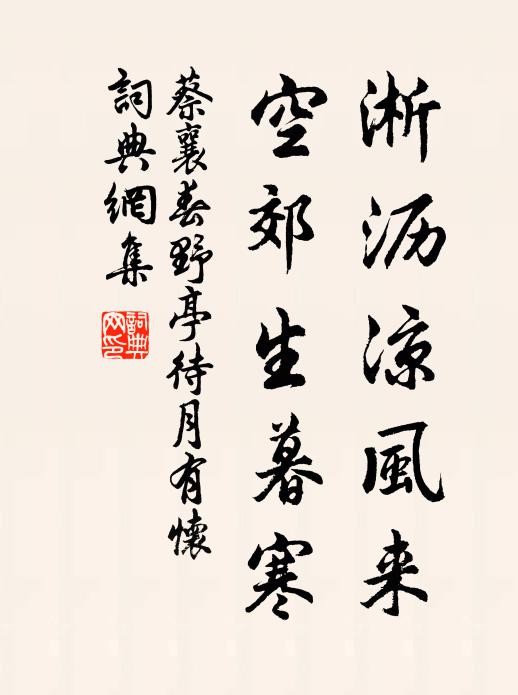 淅沥涼風来
空郊生暮寒
蔡襄春野亭待月有懷
詞典網集
詞典
网印